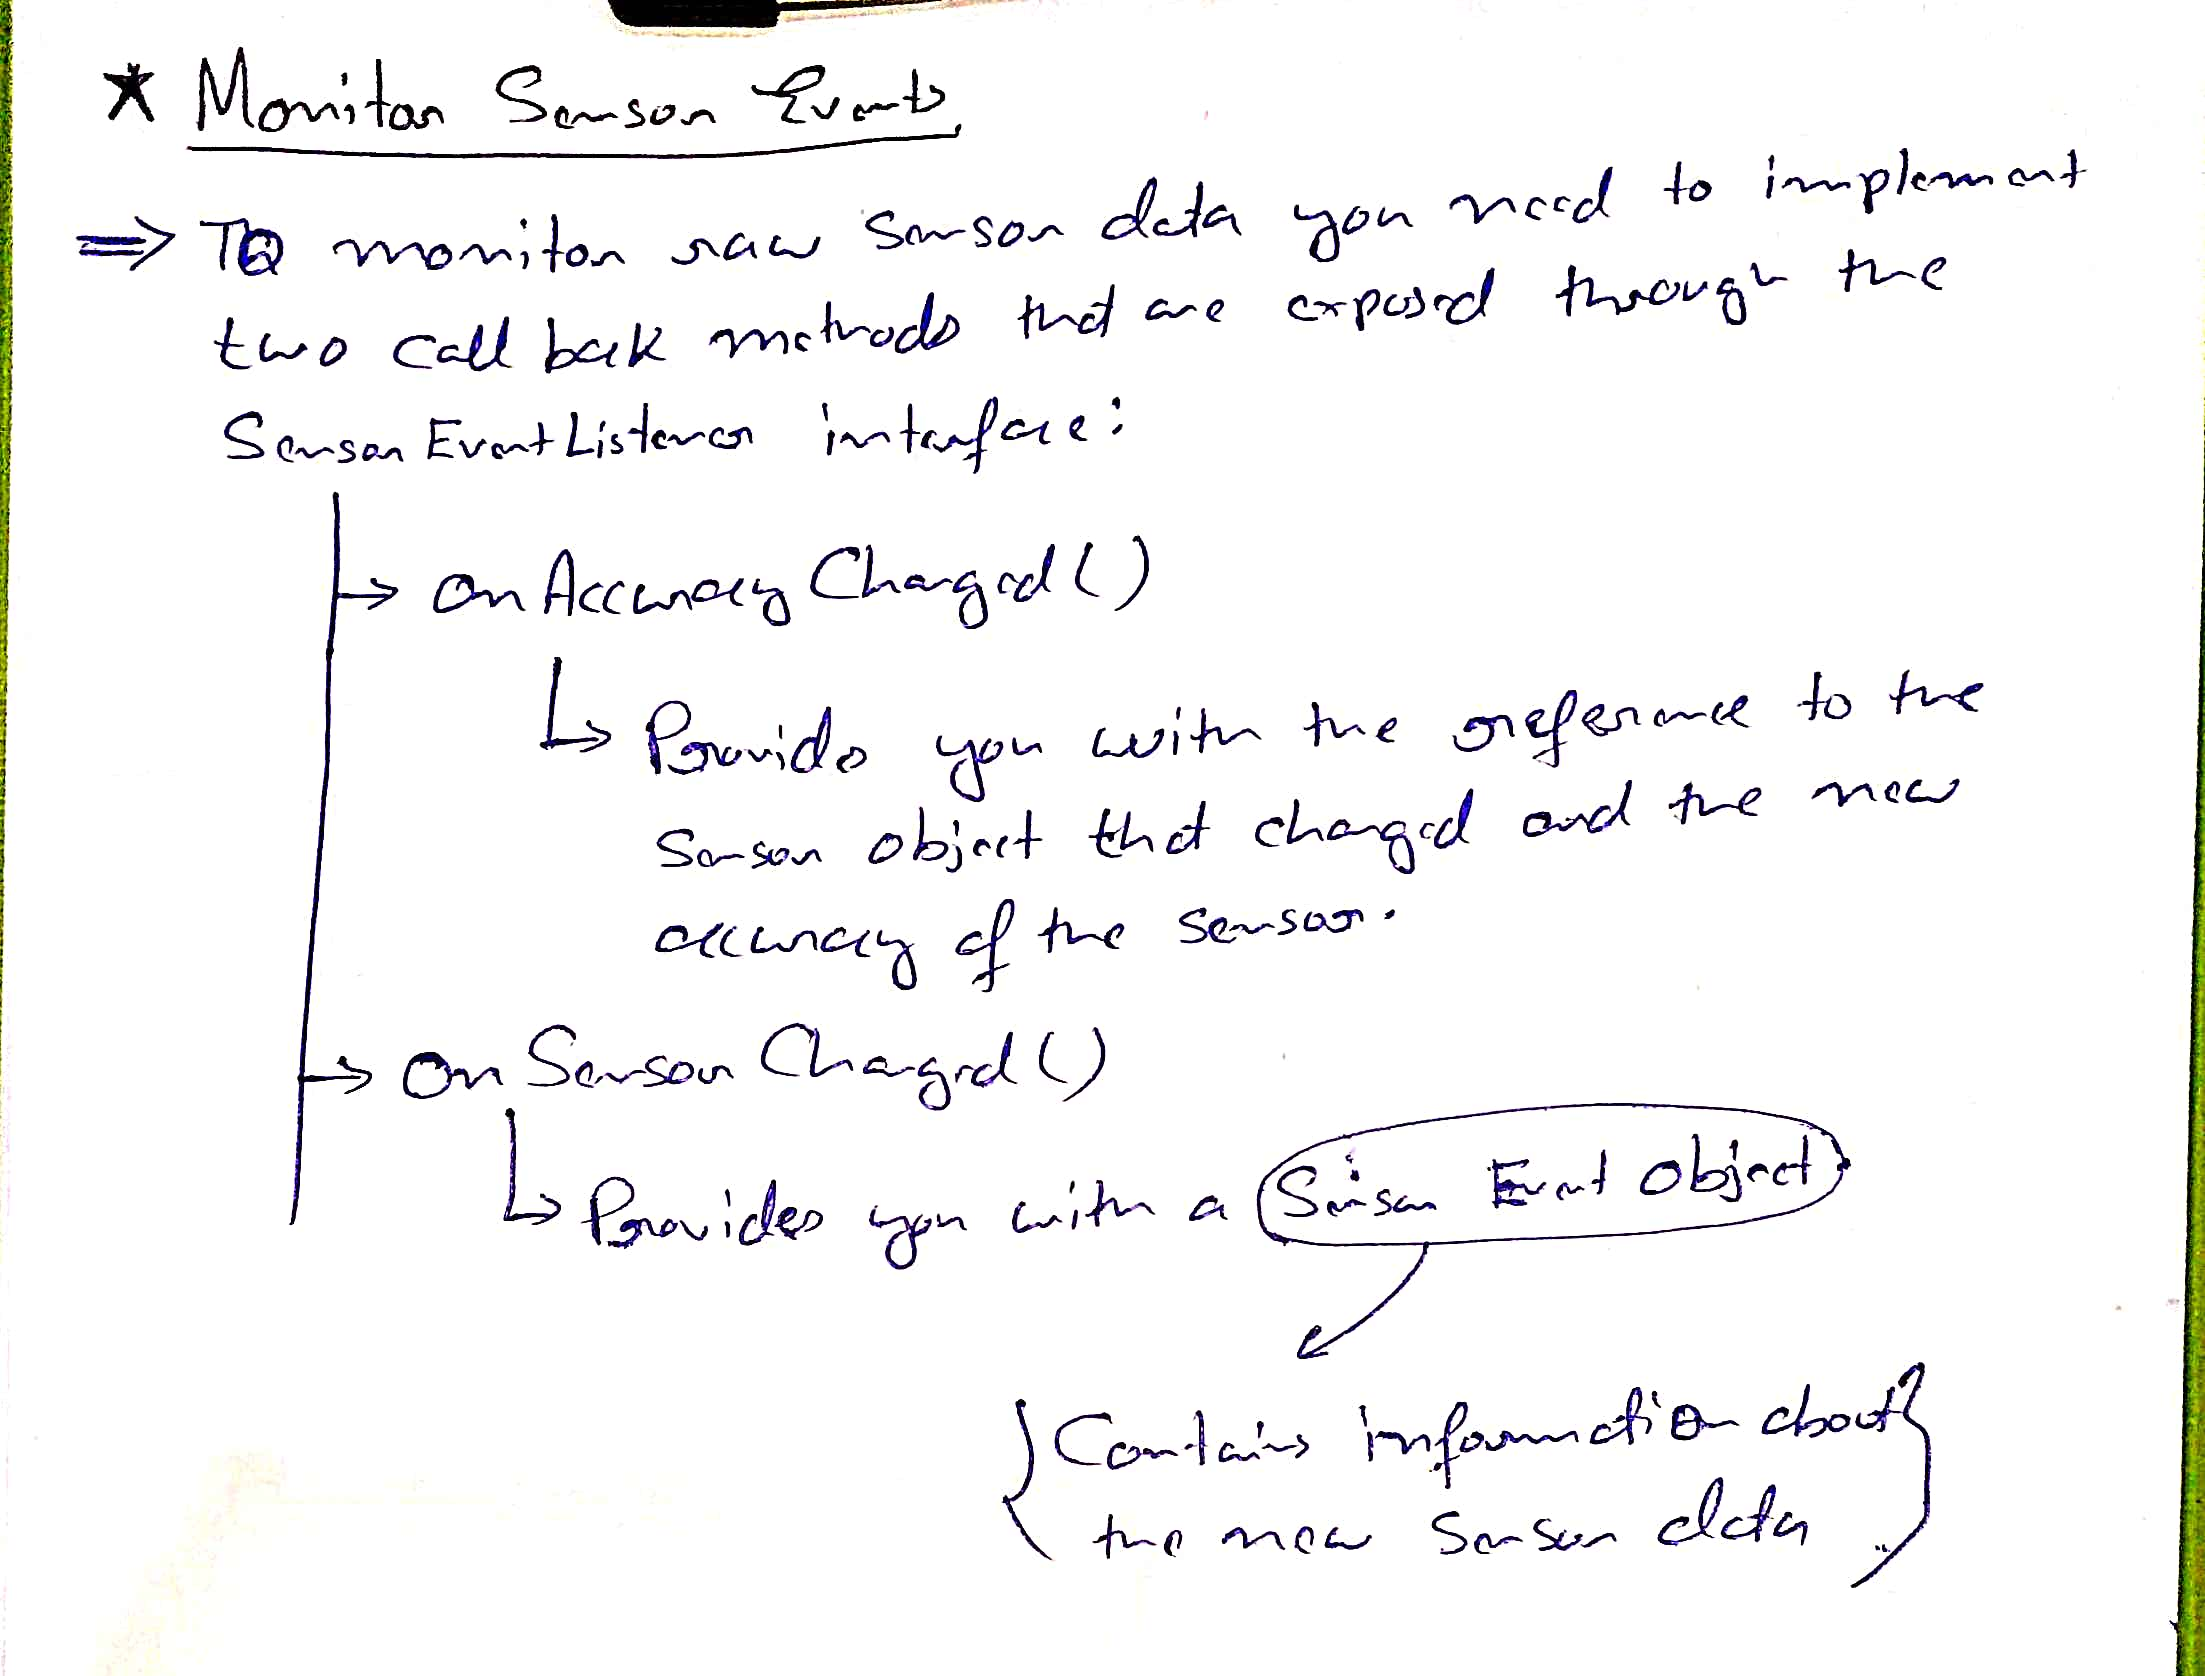 ★ Monitor Sensor Events
⇒ To monitor raw Sensor data you need to implement
two call back methods that are exposed through the
Sensor EventListener interface:
→ on Accuracy Changed ()
↳ Provides you with the reference to the
Sensor object that changed and the new
accuracy of the sensor.
→ On Sensor Changed ()
↳ Provides you with a Sensor Event Object
{ Contains information about
the new Sensor data }